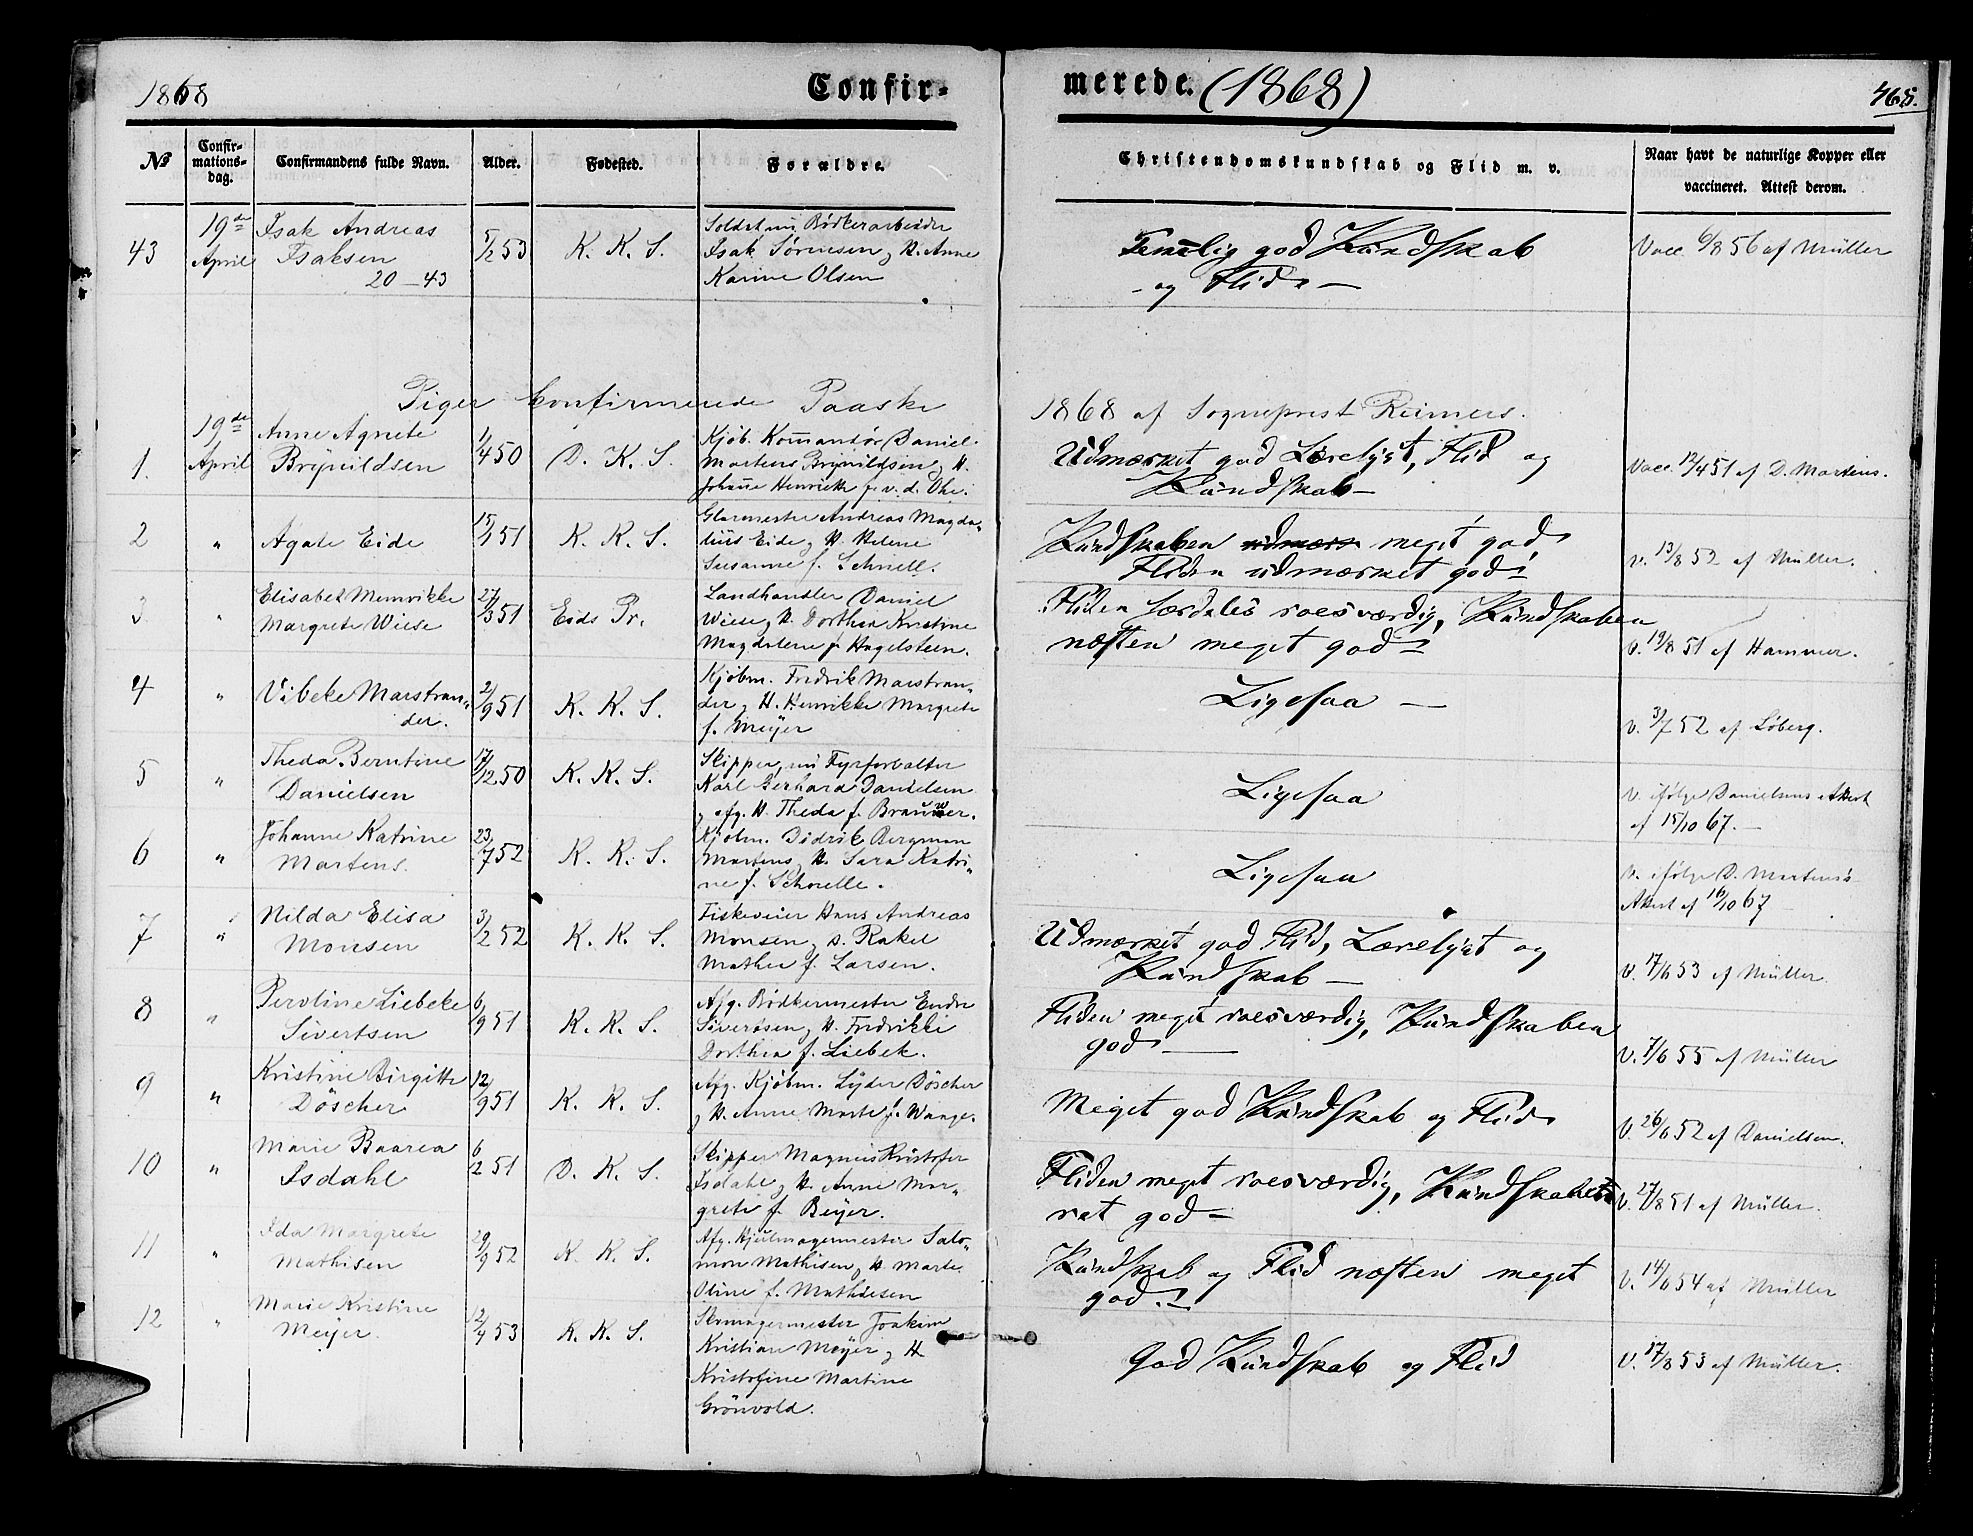 1868
Confir-
merede. (1868)
465.
No
Confir-
mations-
dag.
Confirmandens fulde Navn.
Alder.
Fødested.
Forældre.
Christendomskundskab og Flid m. v.
Naar havt de naturlige Kopper eller
vaccineret. Attest derom.
43
19de
April
Isak Andreas
Isaksen
20 - 43
5/2 53
K. K. S.
Soldat nu Bødkerarbeider
Isak Sørnesen og H. Anne
Karine Olsen
Temelig god Kundskab
og Flid -
Vacc. 6/8 56 af Müller
Piger konfirmerede Paaske
1868 af Sognepræst Reimers.
1.
19de
April
Anne Agnete
Brynildsen
1/4 50
D. K. S.
Kjøb. Komandør Daniel
Martens Brynildsen og H.
Johanne Henriette f. v. d. Ohe.
Udmærket god Lærelyst, Flid og
Kundskab -
Vacc. 12/4 51 af D. Martens.
2
"
Agate Eide
15/1 51
K. K. S.
Glarmester Andreas Magda„
lius Eide og H. Helene
Susanne f. Schnell.
Kundskaben udmærk meget god
Fliden udmærket god
v. 13/8 52 af Müller.
3
"
Elisabet Memrikke
Margrete Wiese
27/3 51
Eids Pr.
Landhandler Daniel
Wiese og H. Dorthea Kristine
Magdalene f. Hagelsteen.
Fliden særdeles roesværdig, Kundskaben
næsten meget god
v. 19/8 51 af Hammer.
4
"
Vibeke Marstran„
der.
2/9 51
K. K. S.
Kjøbm. Fredrik Marstran„
der og H. Henrikke Margrete
f. Meyer
Ligesaa -
v. 3/7 52 af Løberg.
5
"
Theda Berntine
Danielsen
17/12 50
K. K. S.
Skipper, nu Fyrforvalter
Karl Gerhard Danielsen
og afg. H. Theda f. Brauer.
Ligesaa
v. ifølge Danielsens Attest
af 15/10 67. -
6
"
Johanne Katrine
Martens.
23/7 52
K. K. S.
Kjøbm. Didrik Bergman
Martens og H. Sara Katri„
ne f. Schoelle.
Ligesaa
v. ifølge D. Martens's
Attest af 16/10 67
7
"
Nilda Elisa
Monsen
3/2 52
K. K. S.
Fiskeveier Hans Andreas
Monsen og H. Rakel
Mathea f. Larsen.
Udmærket god Flid, Lærelyst og
Kundskab -
v. 7/6 53 af Müller
8
"
Peroline Liebeke
Sivertsen
6/9 51
K. K. S.
Afg. Bødkermester Endre
Sivertsen og H. Fredrikke
Dorthea f. Liebek.
Fliden meget roesværdig, Kundskaben
god -
V. 7/6 55 af Müller
9
"
Kristine Birgitte
Döscher
12/9 51
K. K. S.
Afg. Kjøbm. Lyder Döscher
og H. Anne Marte f. Wange.
Meget god Kundskab og Flid
V. 26/6 52 af Danielsen.
10
"
Marie Baarea
Isdahl
6/2 51
D. K. S.
Skipper Magnus Kristofer
Isdahl og H. Anne Mar„
grete f. Beyer.
Fliden meget roesværdig, Kundskaben
ret god -
V. 27/8 51 af Müller.
11
"
Ida Margrete
Mathisen
29/9 52
K. K. S.
Afg. Hjulmagermester Salo„
mon Mathisen og H. Marte
Oline f. Mathiesen
Kundskab og Flid næsten meget
god.
V. 14/6 54 af Müller
12
"
Marie Kristine
Meyer.
12/4 53
K. K. S.
Skomagermester Joakim
Kristian Meyer og H
Kristofine Martine
Grönvold.
God Kundskab og Flid
V. 17/8 53 af Müller.